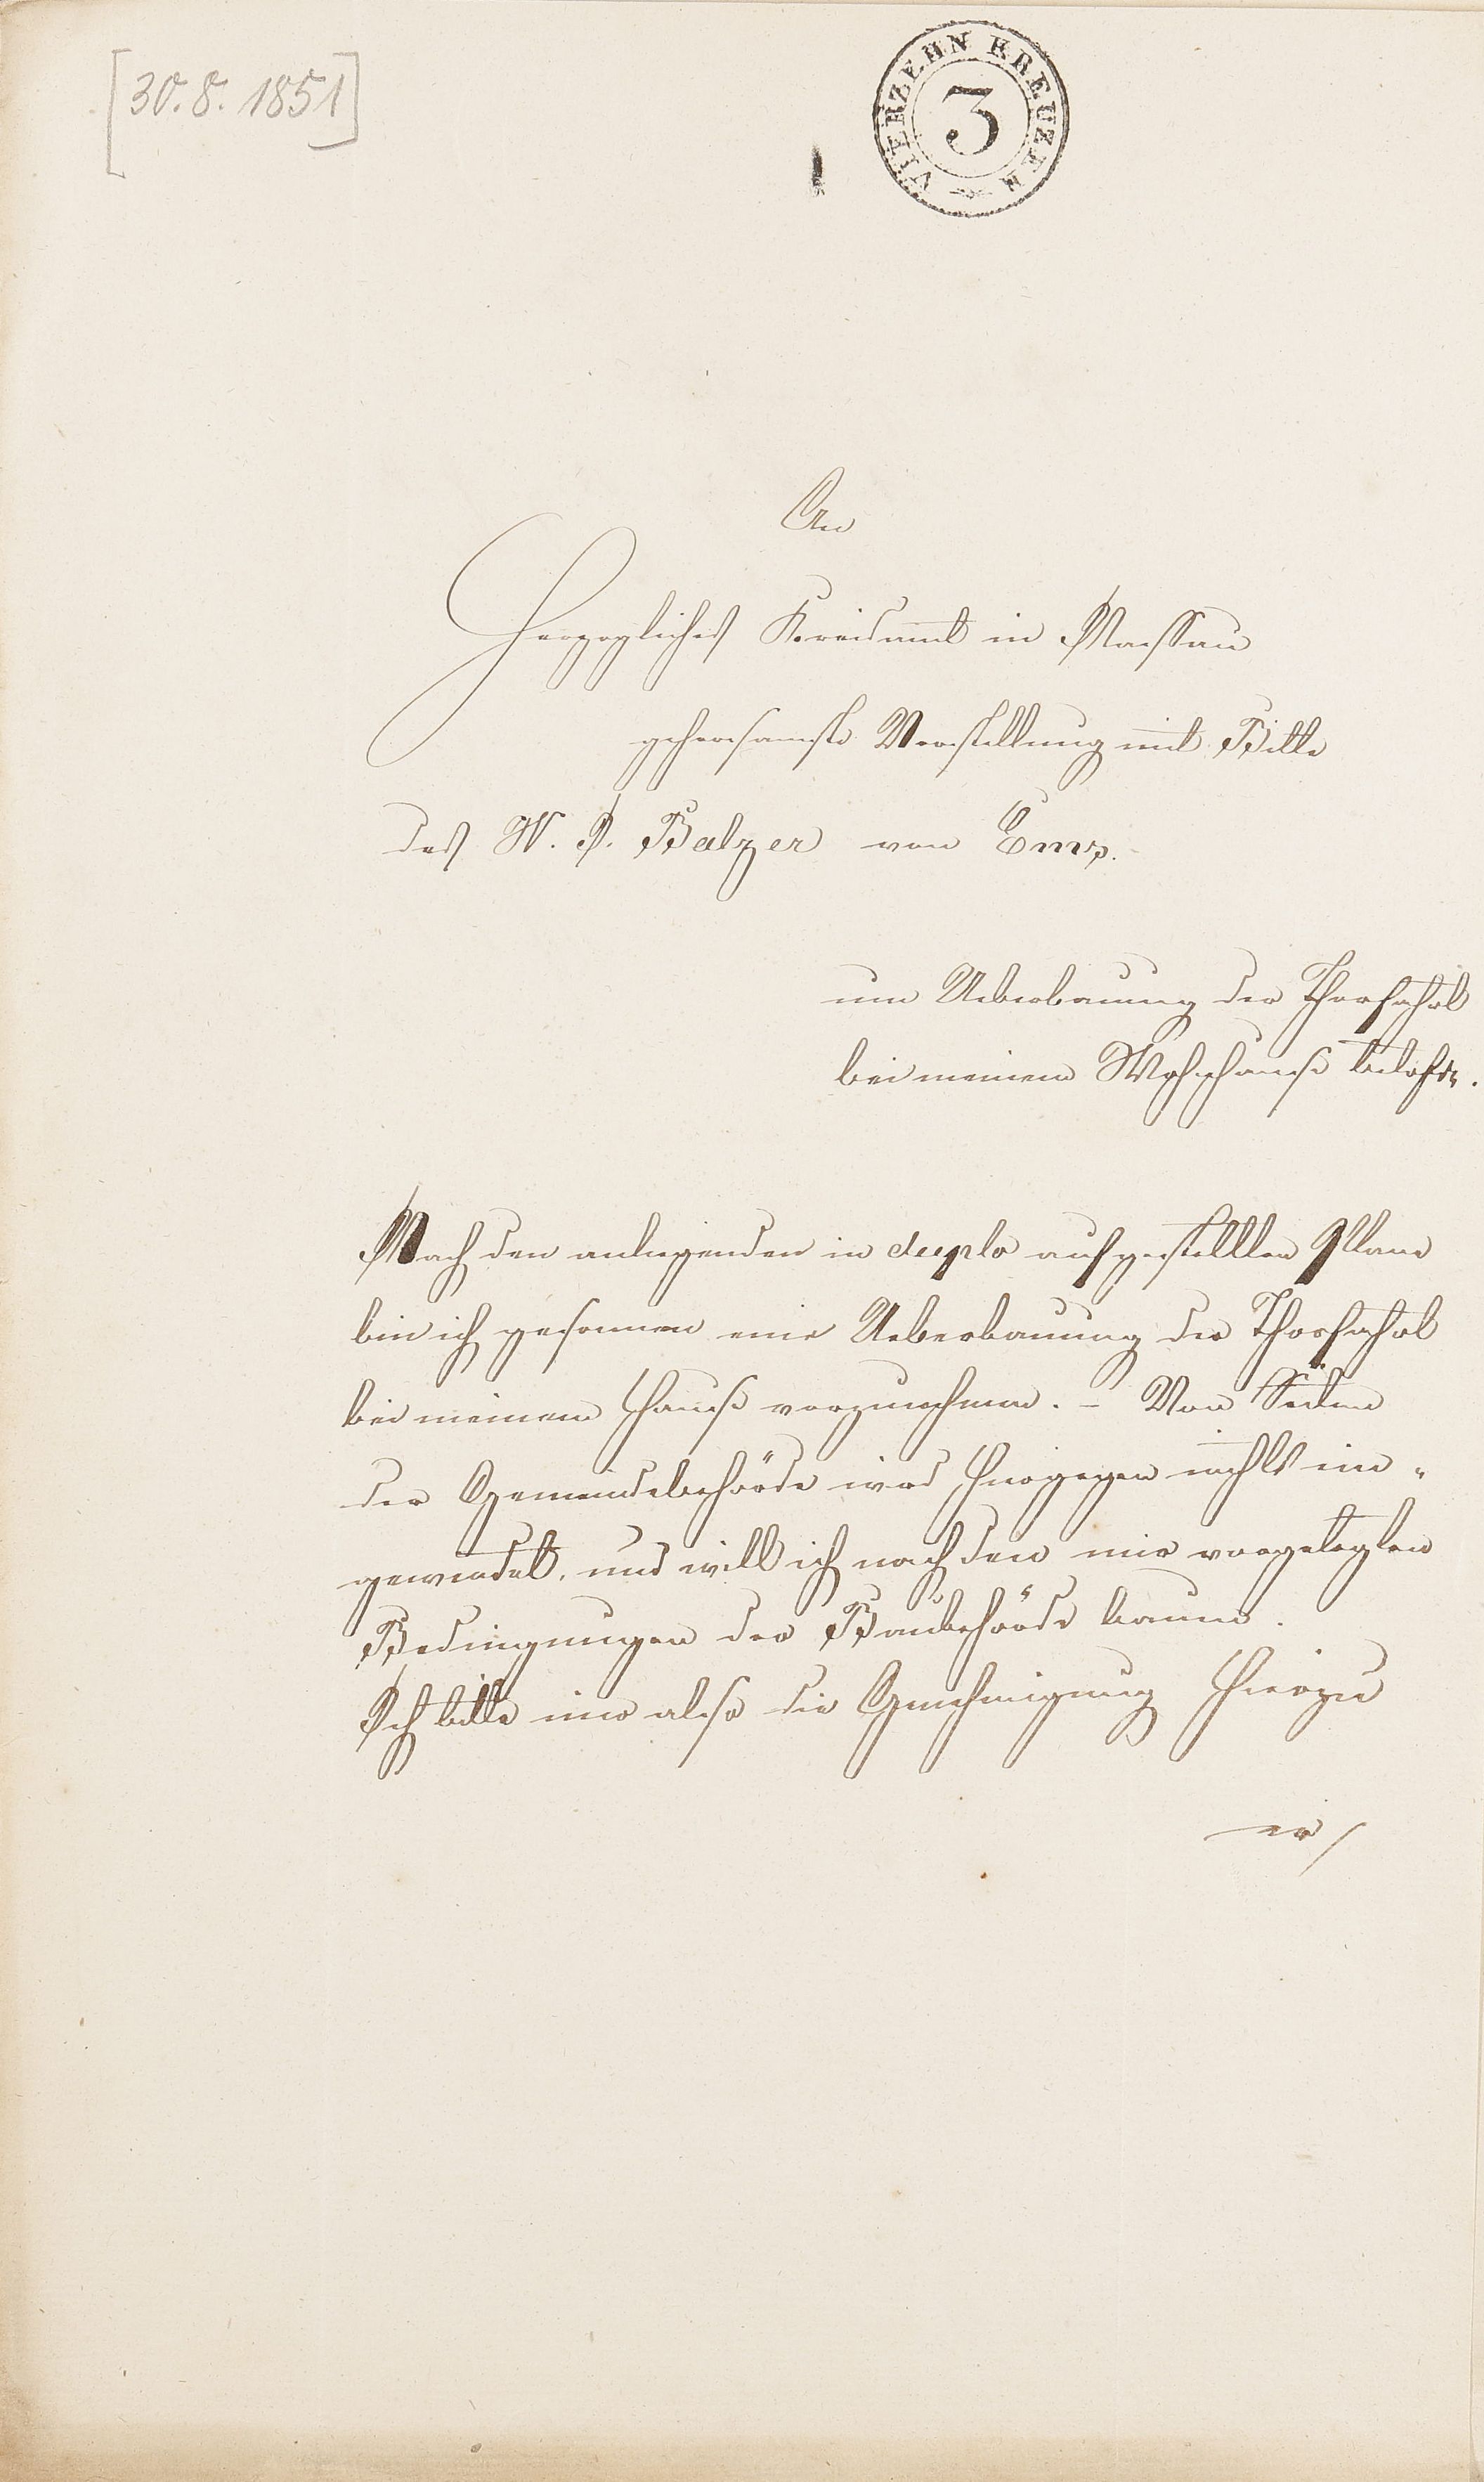 [30.8.1851]
VIERZEHN KREUZER
3
An
Herzogliches Kreisamt in Nassau
gehorsamste Vorstellung mit Bitte
des W. J. Balzer von Ems.
um Ueberbauung der Thorfahrt
bei meinem Wohnhause betfd.
Nach den anliegenden in duplo aufgestellten Plane
bin ich gesonnen eine Ueberbauung der Thorfahrt
bei meinem Hause vorzunehmen. – Von Seiten
der Gemeindebehörde wird hiergegen nichts ein-
gewendet, und will ich nach den mir vorgelegten
Bedingungen der Baubehörde bauen.
Ich bitte mir also die Genehmigung hierzu
er/